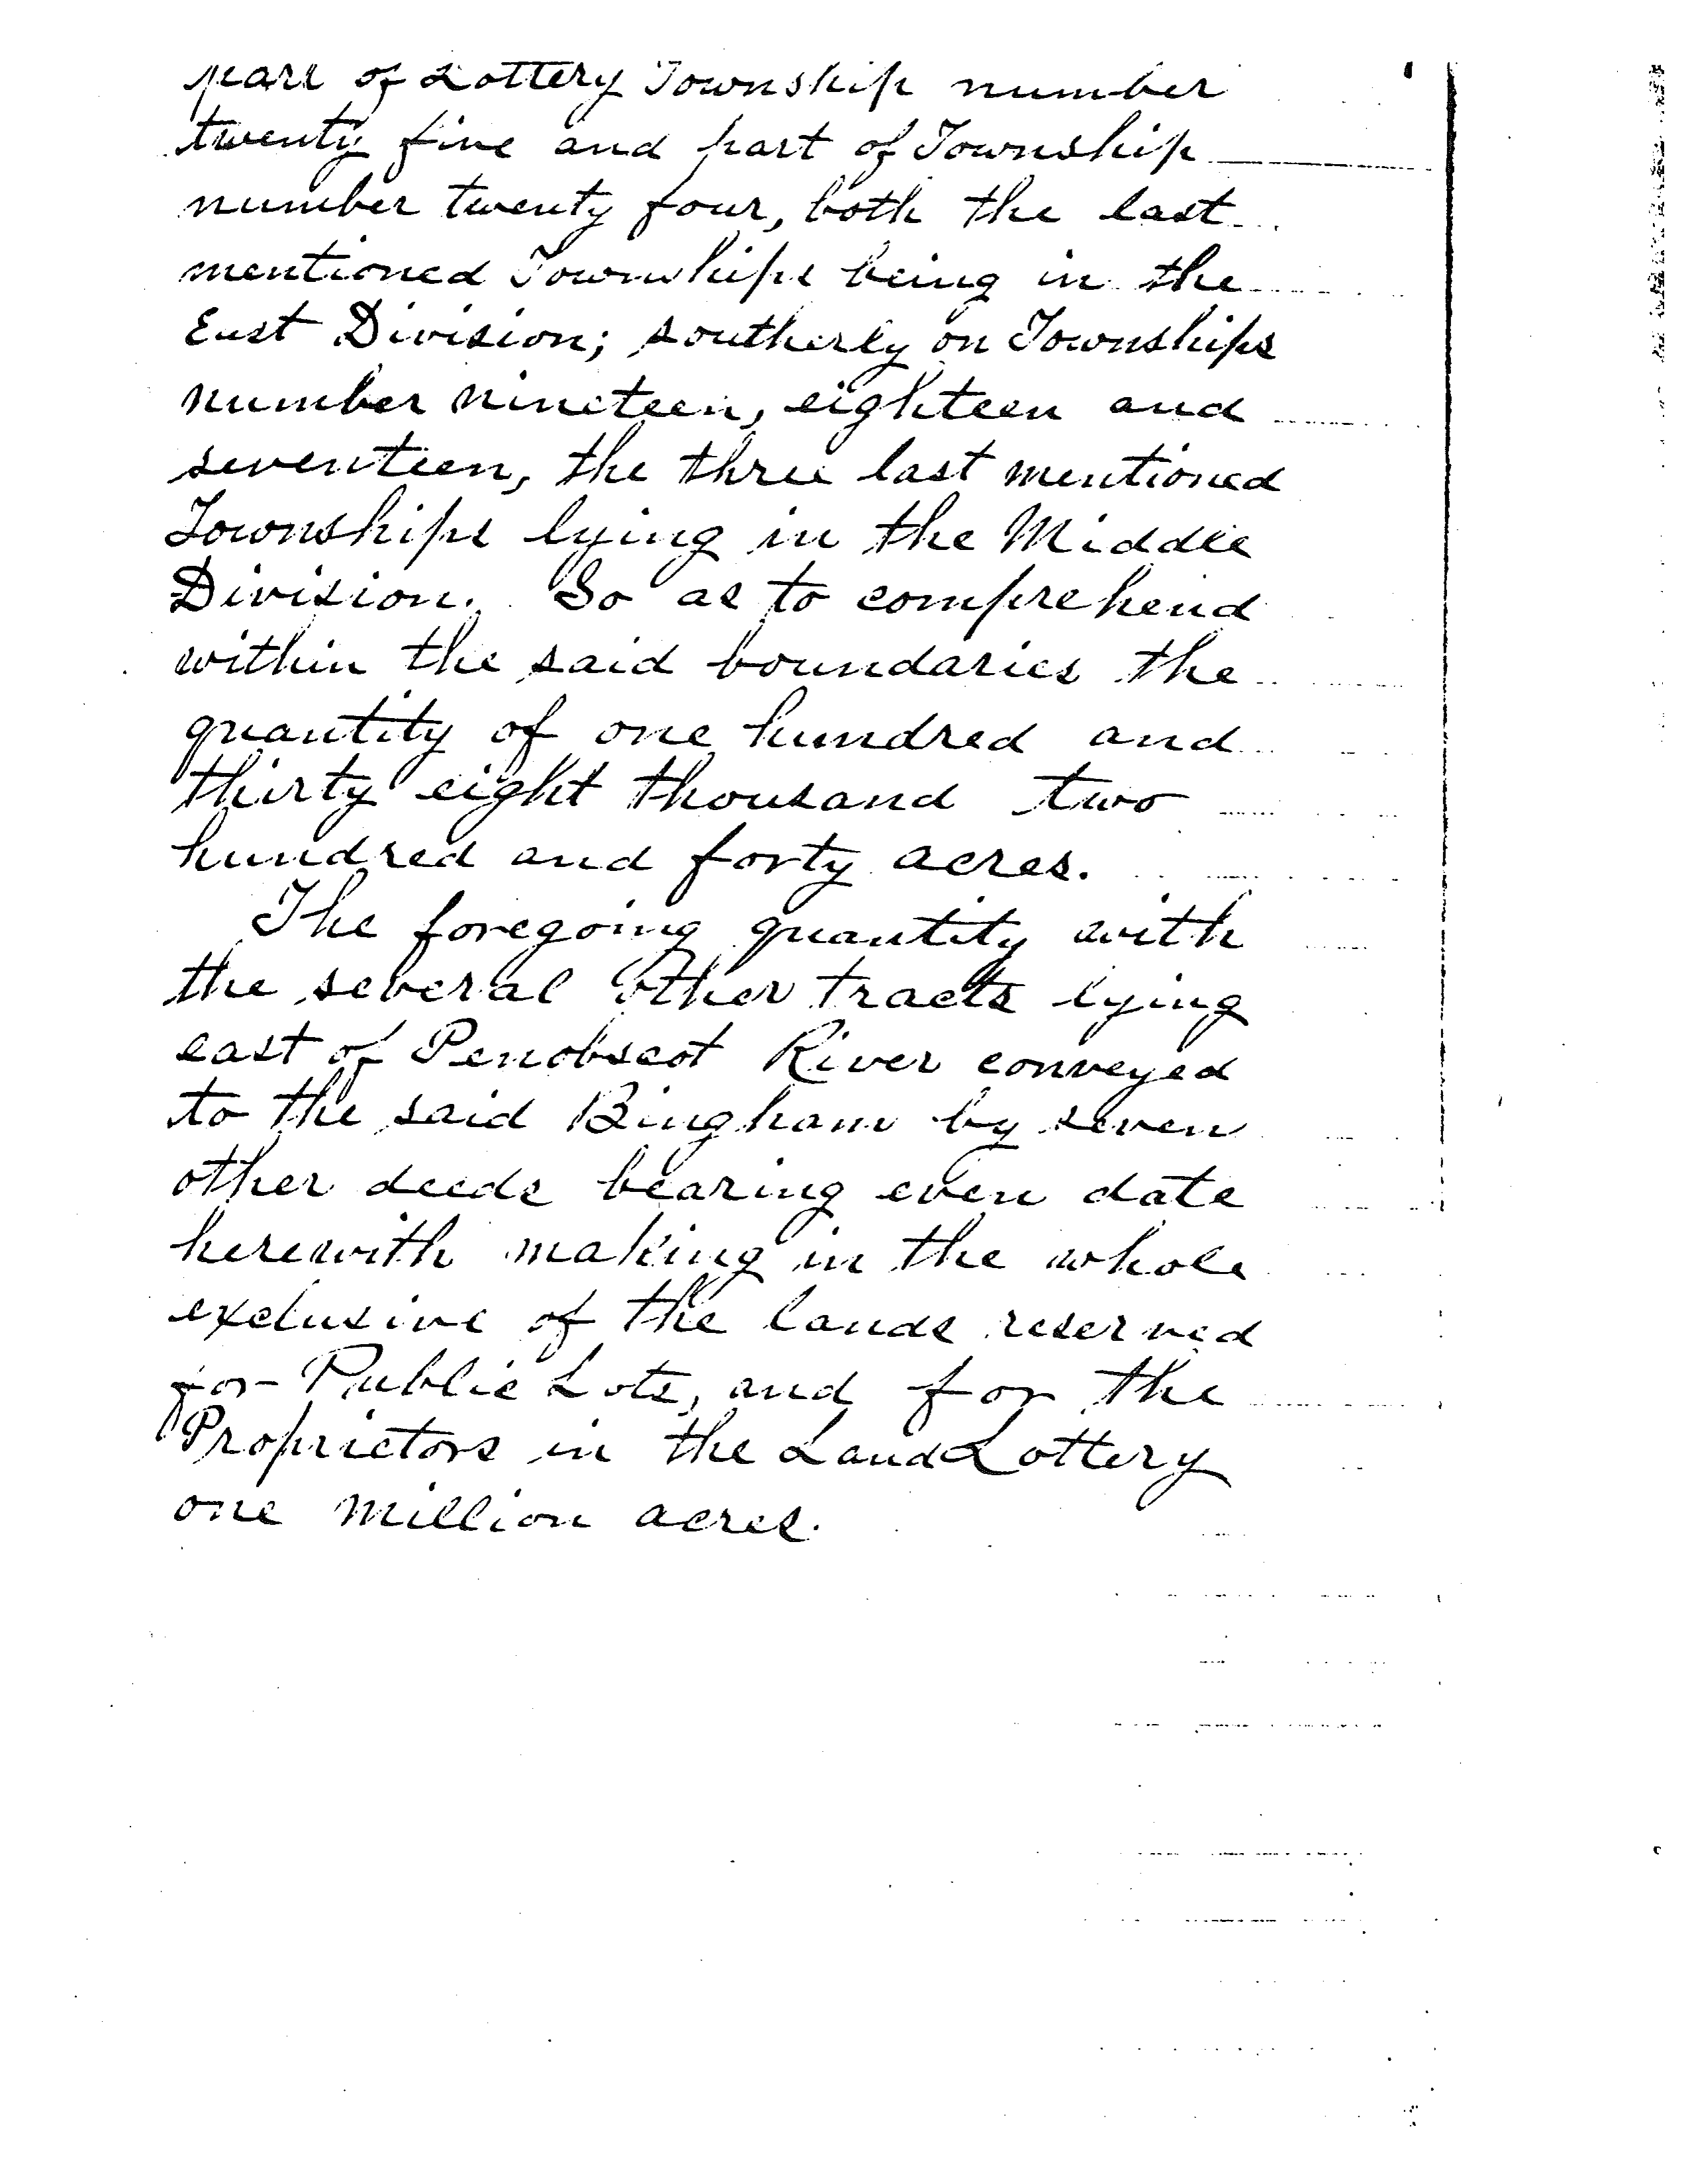 part of Lottery Township number
twenty five and part of Township
number twenty four, both the last
mentioned Townships being in the
East Division; southerly on Townships
number nineteen, eighteen and
seventeen, the three last mentioned
Townships lying in the Middle
Division. So as to comprehend
within the said boundaries the
quantity of one hundred and
thirty eight thousand two
hundred and forty acres.
The foregoing quantity with
the several other tracts lying
east of Penobscot River conveyed
to the said Bingham by seven
other deeds bearing even date
herewith making in the whole
exclusive of the lands reserved
for Public Lots, and for the
Proprietors in the Land Lottery
one million acres.